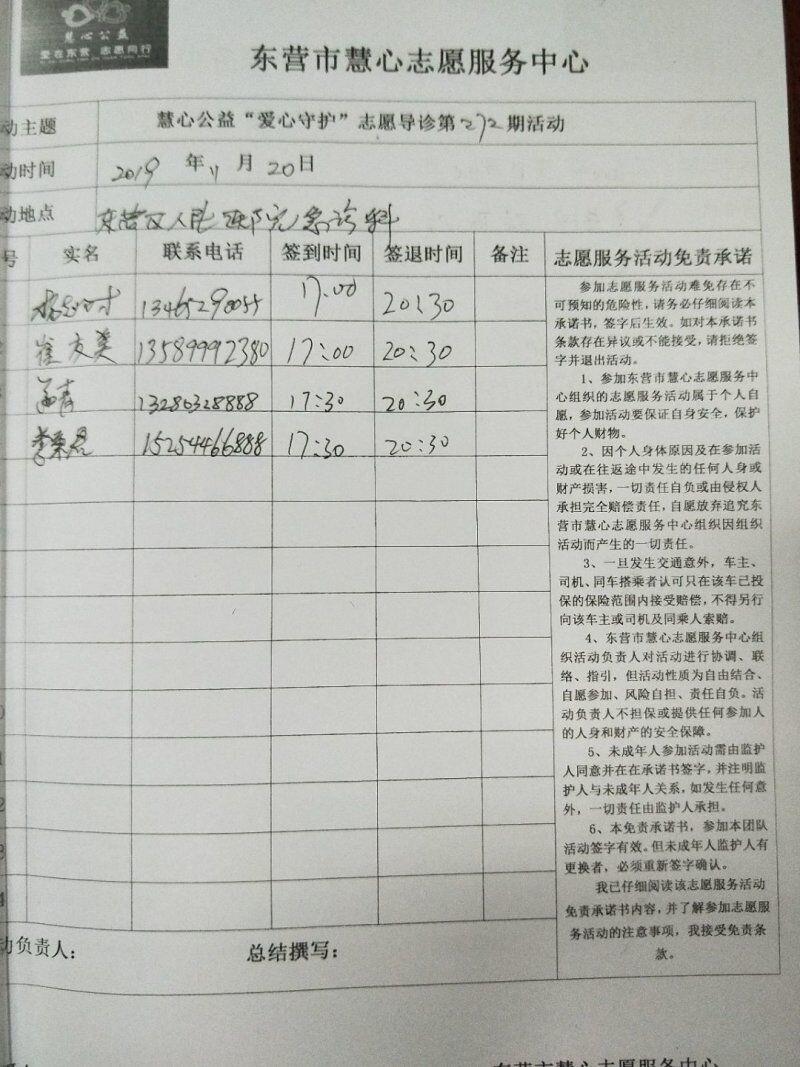 慧心公益
爱在东营 志愿同行
东营市慧心志愿服务中心
动主题 慧心公益“爱心守护”志愿导诊第272期活动
动时间 2019 年 11 月 20 日
动地点 东营区人民医院急诊科
号 实名 联系电话 签到时间 签退时间 备注 志愿服务活动免责承诺
13465290055 17:00 20:30
崔友美 13589992380 17:00 20:30
孟青 13280328888 17:30 20:30
李荣君 15254466888 17:30 20:30
参加志愿服务活动难免存在不
可预知的危险性，请务必仔细阅读本
承诺书，签字后生效。如对本承诺书
条款存在异议或不能接受，请拒绝签
字并退出活动。
1、参加东营市慧心志愿服务中
心组织的志愿服务活动属于个人自
愿，参加活动要保证自身安全，保护
好个人财物。
2、因个人身体原因及在参加活
动或在往返途中发生的任何人身或
财产损害，一切责任自负或由侵权人
承担完全赔偿责任，自愿放弃追究东
营市慧心志愿服务中心组织因组织
活动而产生的一切责任。
3、一旦发生交通意外，车主、
司机、同车搭乘者认可只在该车已投
保的保险范围内接受赔偿，不得另行
向该车主或司机及同乘人索赔。
4、东营市慧心志愿服务中心组
织活动负责人对活动进行协调、联
络、指引，但活动性质为自由结合、
自愿参加、风险自担、责任自负。活
动负责人不担保或提供任何参加人
的人身和财产的安全保障。
5、未成年人参加活动需由监护
人同意并在在承诺书签字，并注明监
护人与未成年人关系，如发生任何意
外，一切责任由监护人承担。
6、本免责承诺书，参加本团队
活动签字有效。但未成年人监护人有
更换者，必须重新签字确认。
我已仔细阅读该志愿服务活动
免责承诺书内容，并了解参加志愿服
务活动的注意事项，我接受免责条
款。
动负责人： 总结撰写：
东营市慧心志愿服务中心